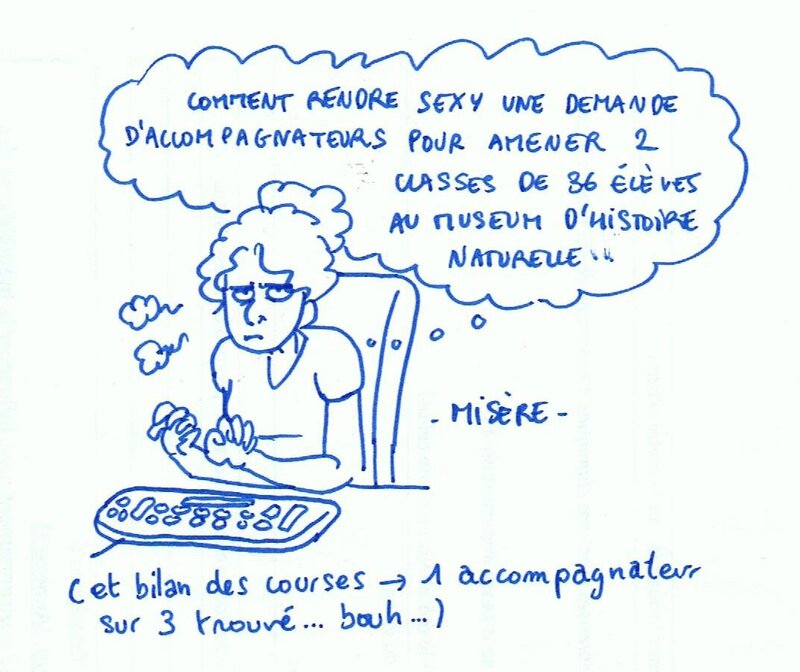 COMMENT RENDRE SEXY UNE DEMANDE
D'ACCOMPAGNATEURS POUR AMENER 2
CLASSES DE 36 ÉLÈVES
AU MUSEUM D'HISTOIRE
NATURELLE...
- MISÈRE -
(et bilan des courses → 1 accompagnateur
sur 3 trouvé... bouh...)